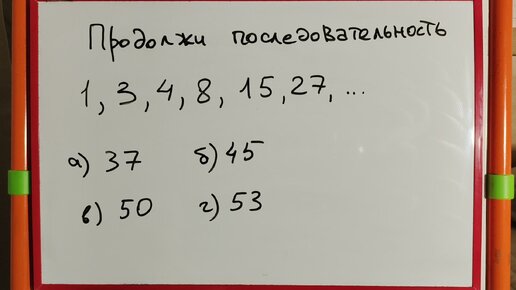 Продолжи последовательность
1, 3, 4, 8, 15, 27, ...
а) 37 б) 45
в) 50 г) 53